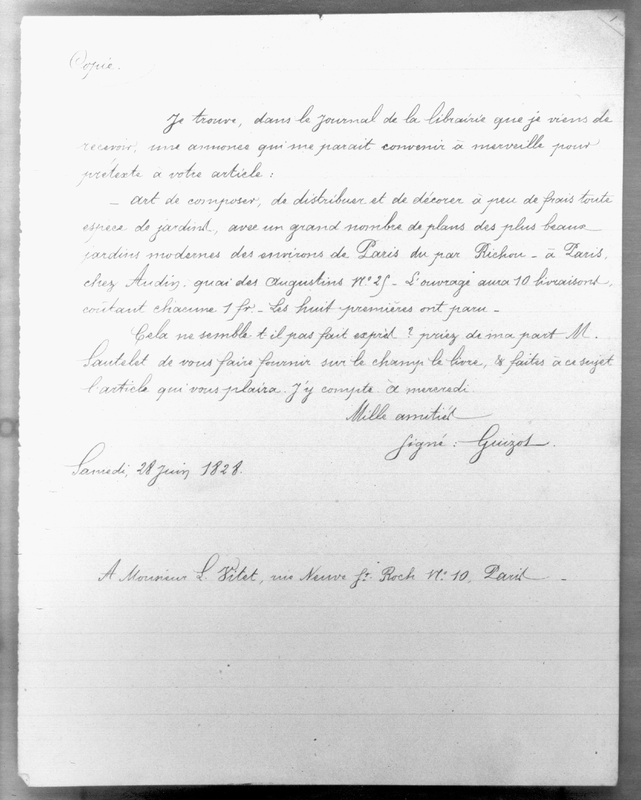 Copie.
Je trouve, dans le Journal de la librairie que je viens de
recevoir, une annonce qui me parait convenir à merveille pour
prétexte à votre article :
_ Art de composer, de distribuer et de décorer à peu de frais toute
espèce de jardins, avec un grand nombre de plans des plus beaux
jardins modernes des environs de Paris du par Richou _ à Paris,
chez Audin, quai des Augustins N° 25 _ L'ouvrage aura 10 livraisons,
coûtant chacune 1 fr. _ Les huit premières ont paru _
Cela ne semble t-il pas fait exprès ? priez de ma part M.
Sautelet de vous faire fournir sur le champ le livre, & faites à ce sujet
l'article qui vous plaira. J'y compte à mercredi
Mille amitiés
signé : Guizot.
Samedi, 28 Juin 1828.
A Monsieur L. Vitet, rue Neuve St. Roch N° 10, Paris _